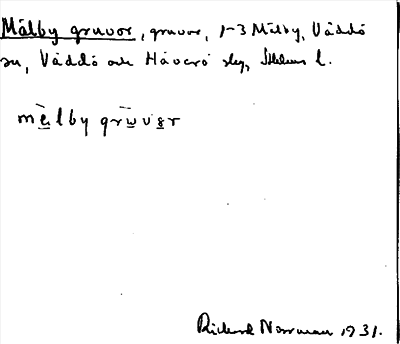 Mälby gruvor, gruvor, 1-3 Mälby, Väddö
sn, Väddö och Häverö slg, Sthlms l.
mälby grūvər
Richard Norrman 1931.